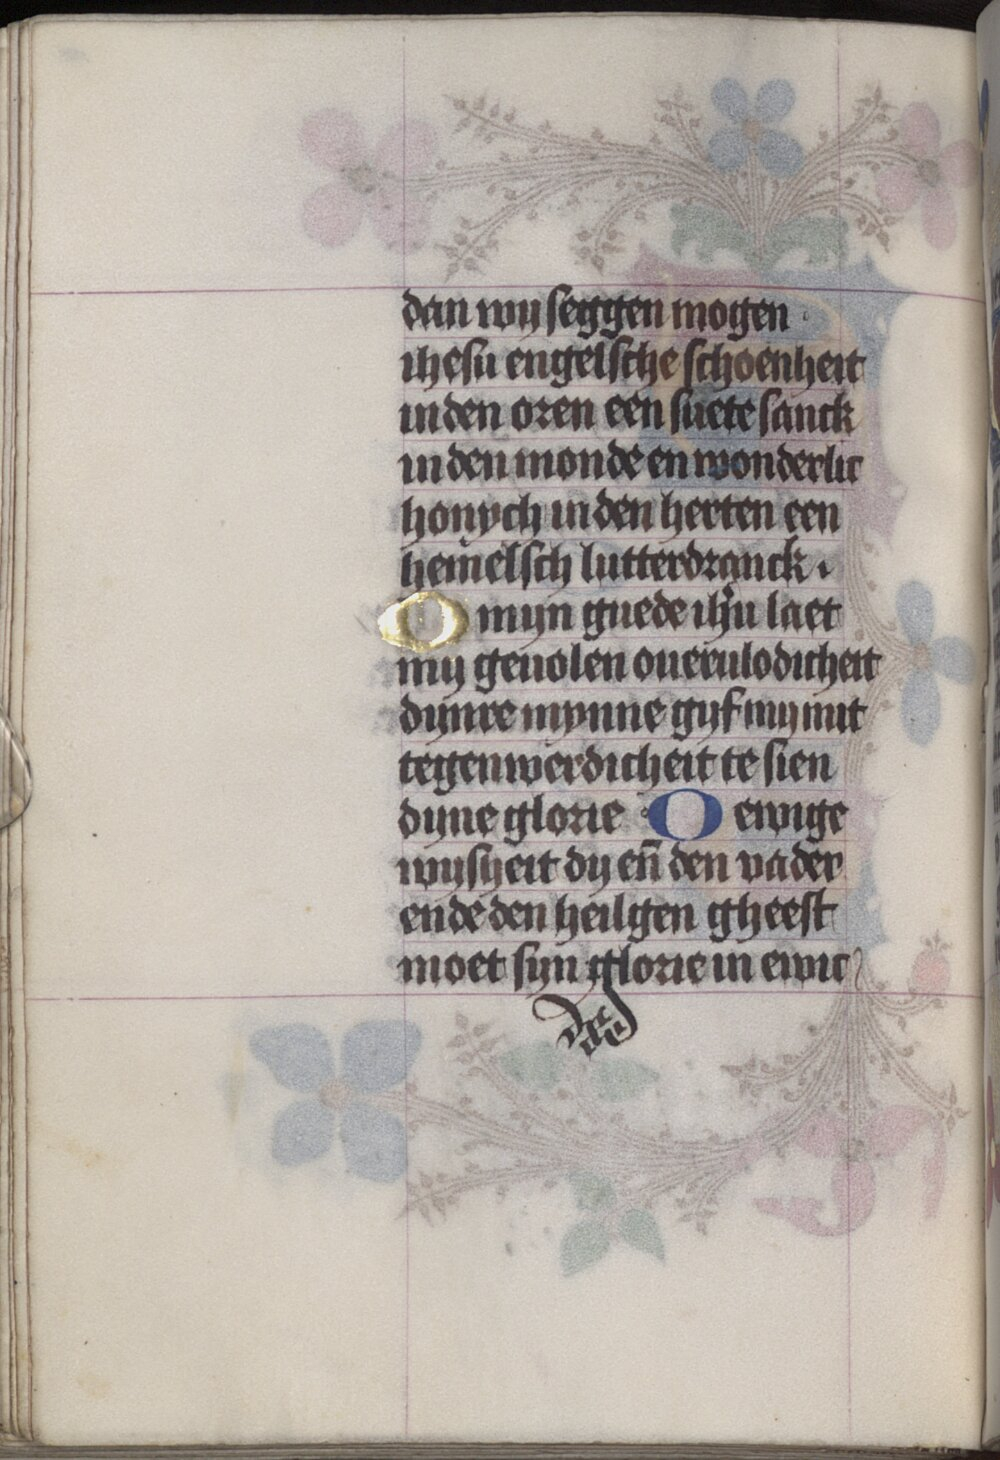 dan wy seggen mogen
ihesu engelsche schoenheit
in den oren een suete sanck
in den monde en wonderlic
honych in den herten een
hemelsch lutterdranck.
O myn guede ihu laet
my geuolen oueruloдicheit
dynre mynne gyf my mit
tegenwerdicheit te sien
dyne glorie O ewige
wysheit dy eñ den vader
ende den heilgen gheest
moet syn glorie in ewic